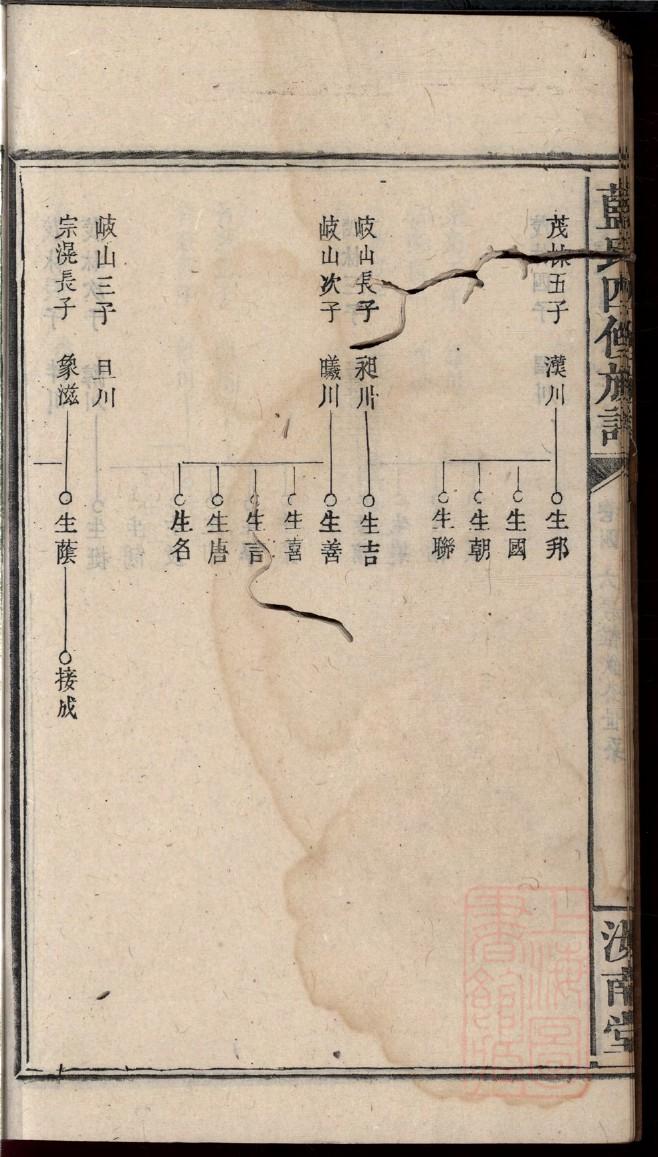 藍氏四修族譜
汝南堂
茂林五子 漢川
生邦
生國
生朝
生聯
岐山長子 昶川
生吉
岐山次子 曦川
生善
生喜
生言
生唐
生名
岐山三子 旦川
宗滉長子 象滋
生蔭
接成
上海圖
書館藏